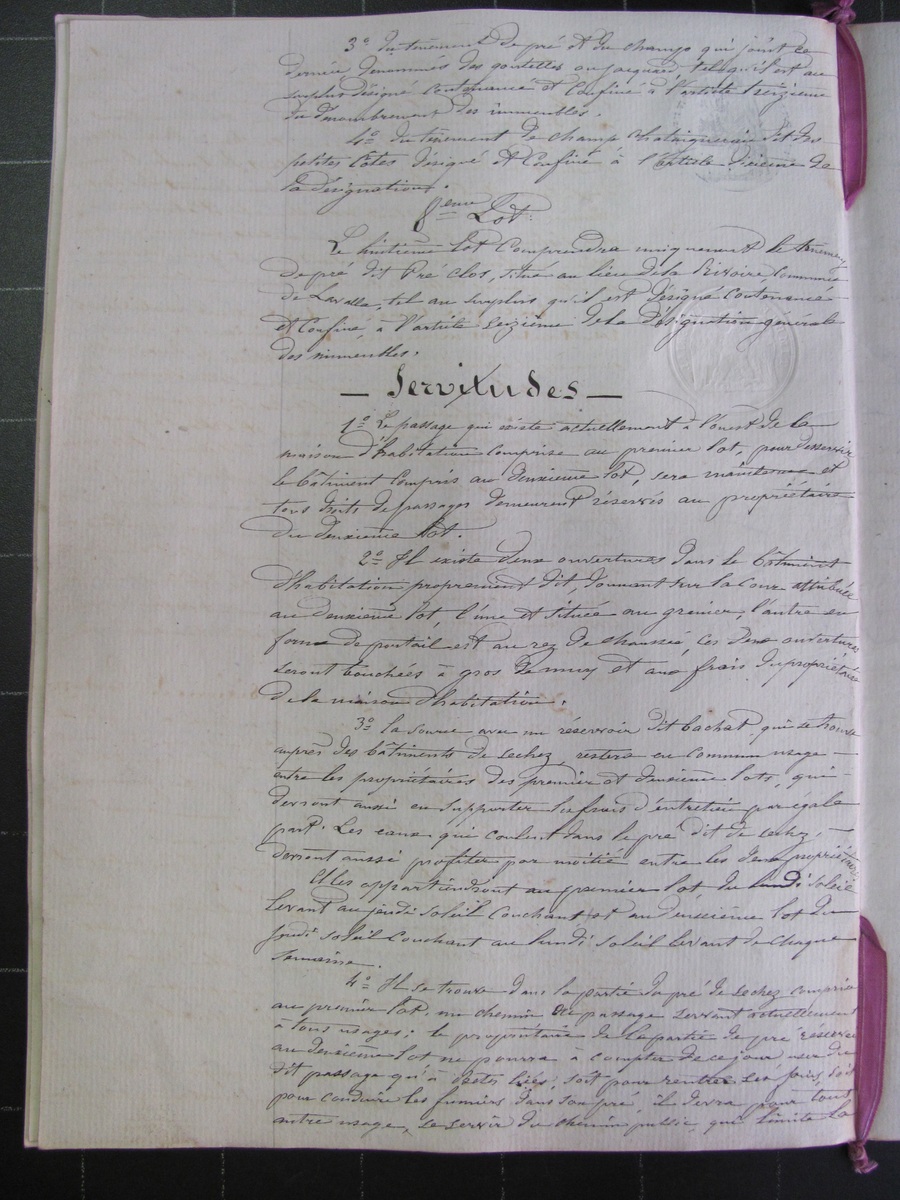 3° Du tenement de pré et du champ qui joint ce
dernier dénommés des goutelles ou jacquard, tel qu'il est au
surplus désigné contenance et confiné à l'article treizième
du démembrement des immeubles.
4° du tènement de champ chataigneraie dit des
petites Côtes désigné et confiné à l'article dixième de
la désignation.
8eme Lot:
Le huitième lot Comprendra uniquement le tènement
de pré dit Pré Clos, situé au lieu de la Rivoire Commune
de Lavalla, tel au surplus qu'il est désigné contenancé
et confiné à l'article seizième de la désignation générale
des immeubles.
— Servitudes —
1° Le passage qui existe actuellement à l'ouest de la
maison d'habitation Comprise au premier lot, pour desservir
le bâtiment compris au deuxième lot, sera maintenu et
tous droits de passages demeurent réservés au propriétaire
du deuxième lot.
2° Il existe deux ouvertures dans le bâtiment
d'habitation proprement dit, donnant sur la cour attribuée
au deuxième lot, l'une est située au grenier, l'autre en
forme de portail est au rez de chaussée, ces deux ouvertures
seront bouchées à gros de mur et aux frais du propriétaire
de la maison d'habitation.
3° la source avec un réservoir dit bachat, qui se trouve
auprès des bâtiments de Lechez, restera en commun usage —
entre les propriétaires des premier et deuxième lots, qui —
devront aussi en supporter les frais d'entretien par égale
part. Les eaux qui coulent dans le pré dit de Lechez, —
devront aussi profiter par moitié entre les deux propriétaires.
Elles appartiendront au premier lot du lundi soleil
levant au jeudi soleil couchant et au deuxième lot du
jeudi soleil couchant au lundi soleil levant de chaque
semaine.
4° Il se trouve dans la partie du pré de Lechez comprise
au premier lot un chemin de passage servant actuellement
à tous usages; le propriétaire de la partie de pré réservée
au deuxième lot ne pourra à compter de ce jour user du
dit passage qu'à bestes liées, soit pour rentrer ses foins, soit
pour conduire les fumiers dans son pré, il devra pour tout
autre usage, se servir du chemin public, qui limite la